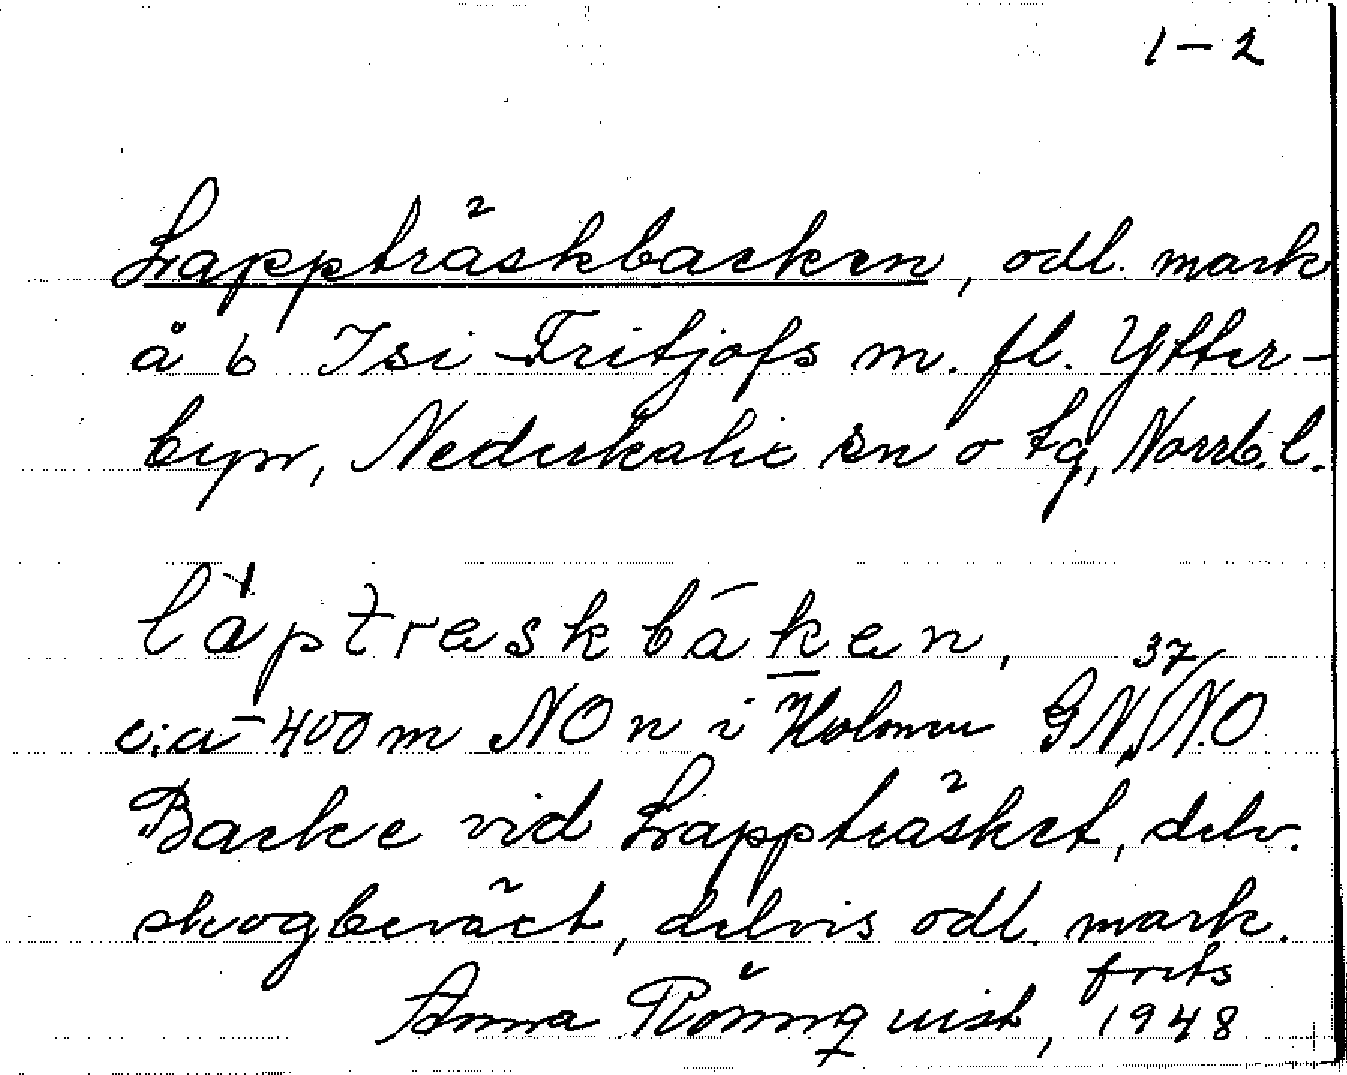 1-2
Lappträskbacken, odl. mark
å 6 Isi Fritjofs m. fl. Ytter-
byn, Nederkalix sn o tg, Norrb. l.
làptræskbāken,
c:a 400 m NO n i Holmen GN 37/N.O
Backe vid Lappträsket, delv.
skogbeväxt, delvis odl. mark.
Anna Rönnquist, frits
1948